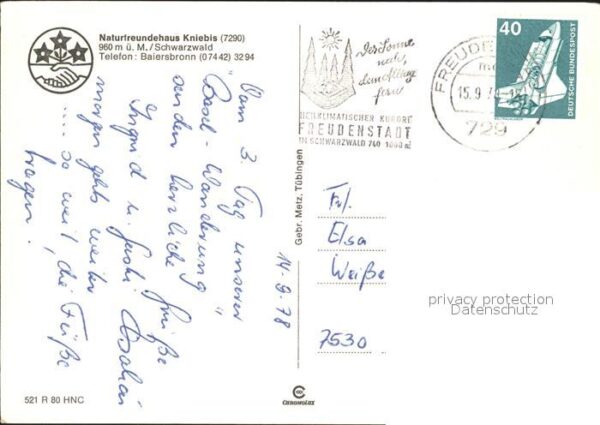 Naturfreundehaus Kniebis (7290)
960 m ü. M./Schwarzwald
Telefon: Baiersbronn (07442) 3294
Vom 3. Tag unserer
"Basel-Wanderung"
senden herzliche Grüße
Ingrid u. Gushi
morgen geht's weiter
.... so weit, die Füße
tragen.
14.9.78
521 R 80 HNC
Gebr. Metz, Tübingen
CHROMOLUX
Der Sonne
nah,
dem Alltag
fern
HEILKLIMATISCHER KURORT
FREUDENSTADT
IM SCHWARZWALD 740-1000 m
FREUDE
15.9.
729
40
DEUTSCHE BUNDESPOST
Frl.
Elsa
Weiße
7530
privacy protection
Datenschutz